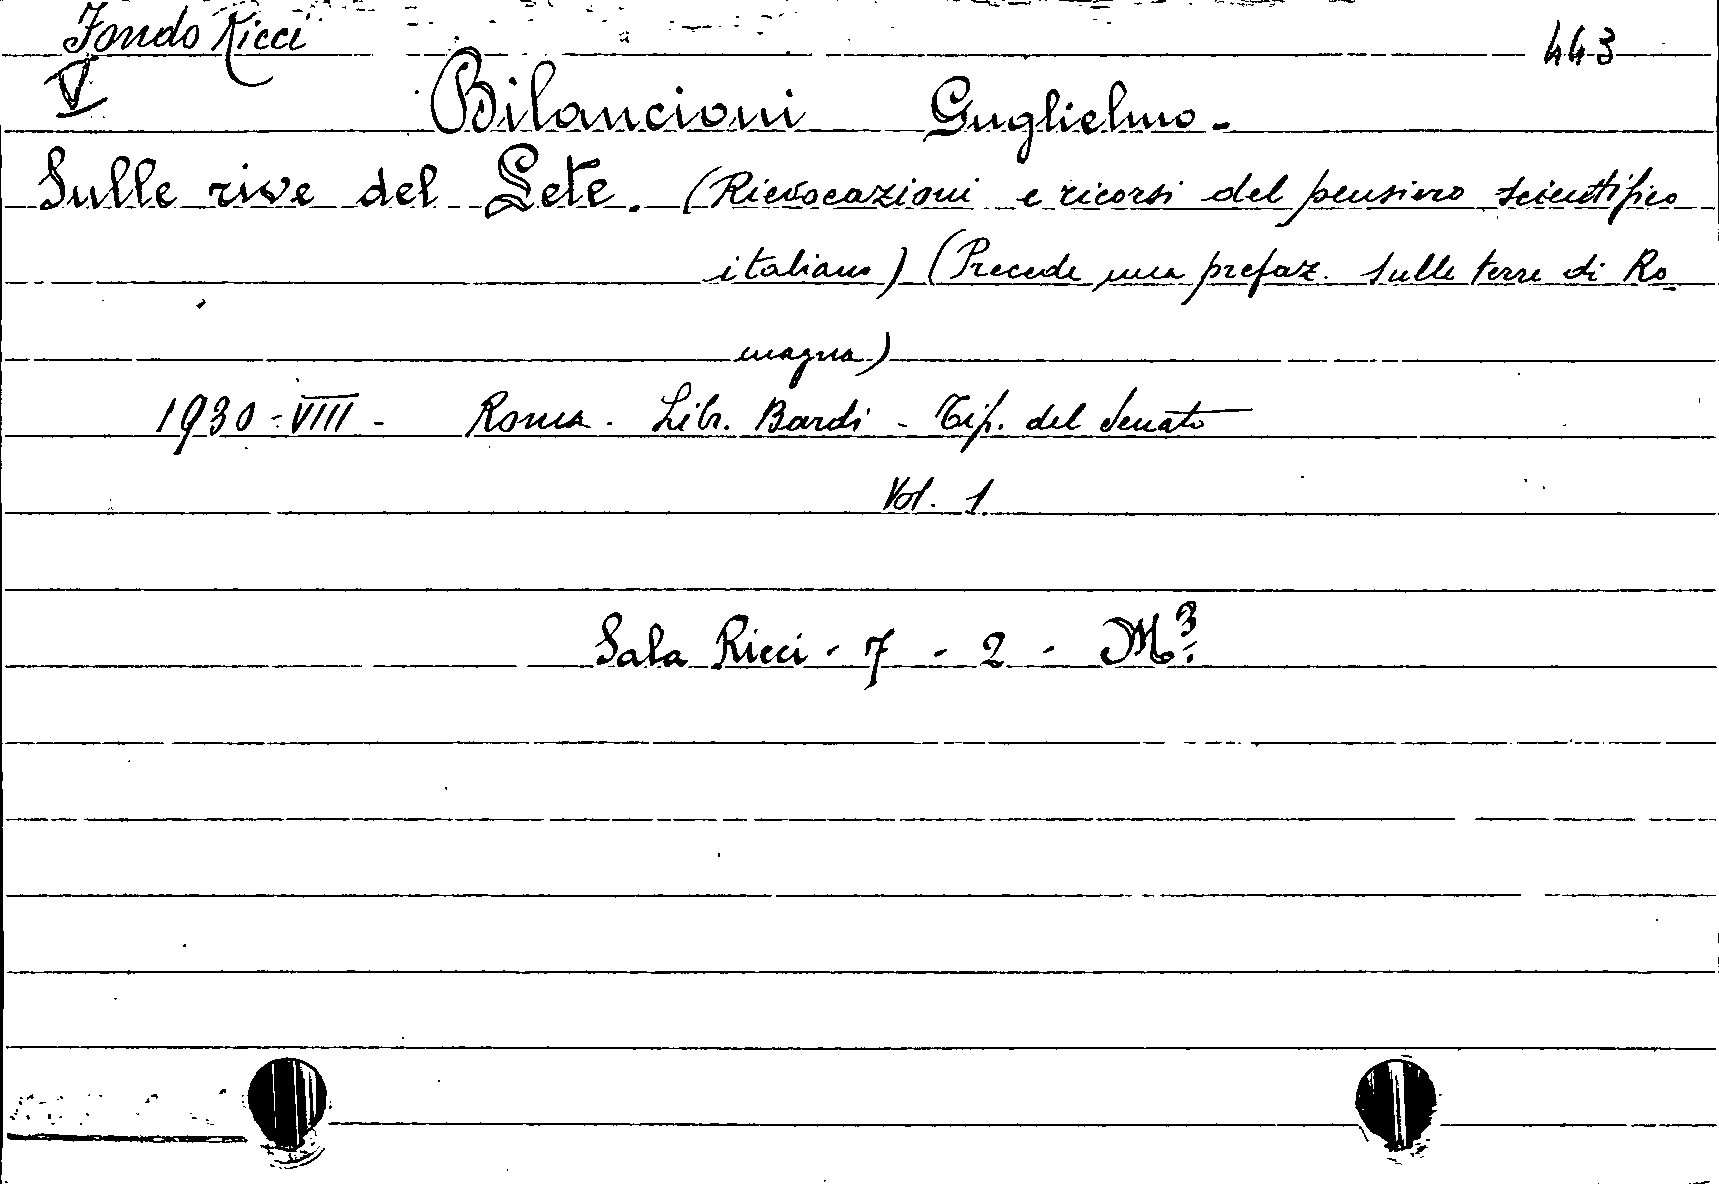 Fondo Ricci
443
V
Bilancioni Guglielmo -
Sulle rive del Lete. (Rievocazioni e ricorsi del pensiero scientifico
italiano) (Precede una prefaz. sulle terre di Ro-
magna)
1930 - VIII - Roma - Libr. Bardi - Tip. del Senato
Vol. 1
Sala Ricci - 7 - 2 - M³.